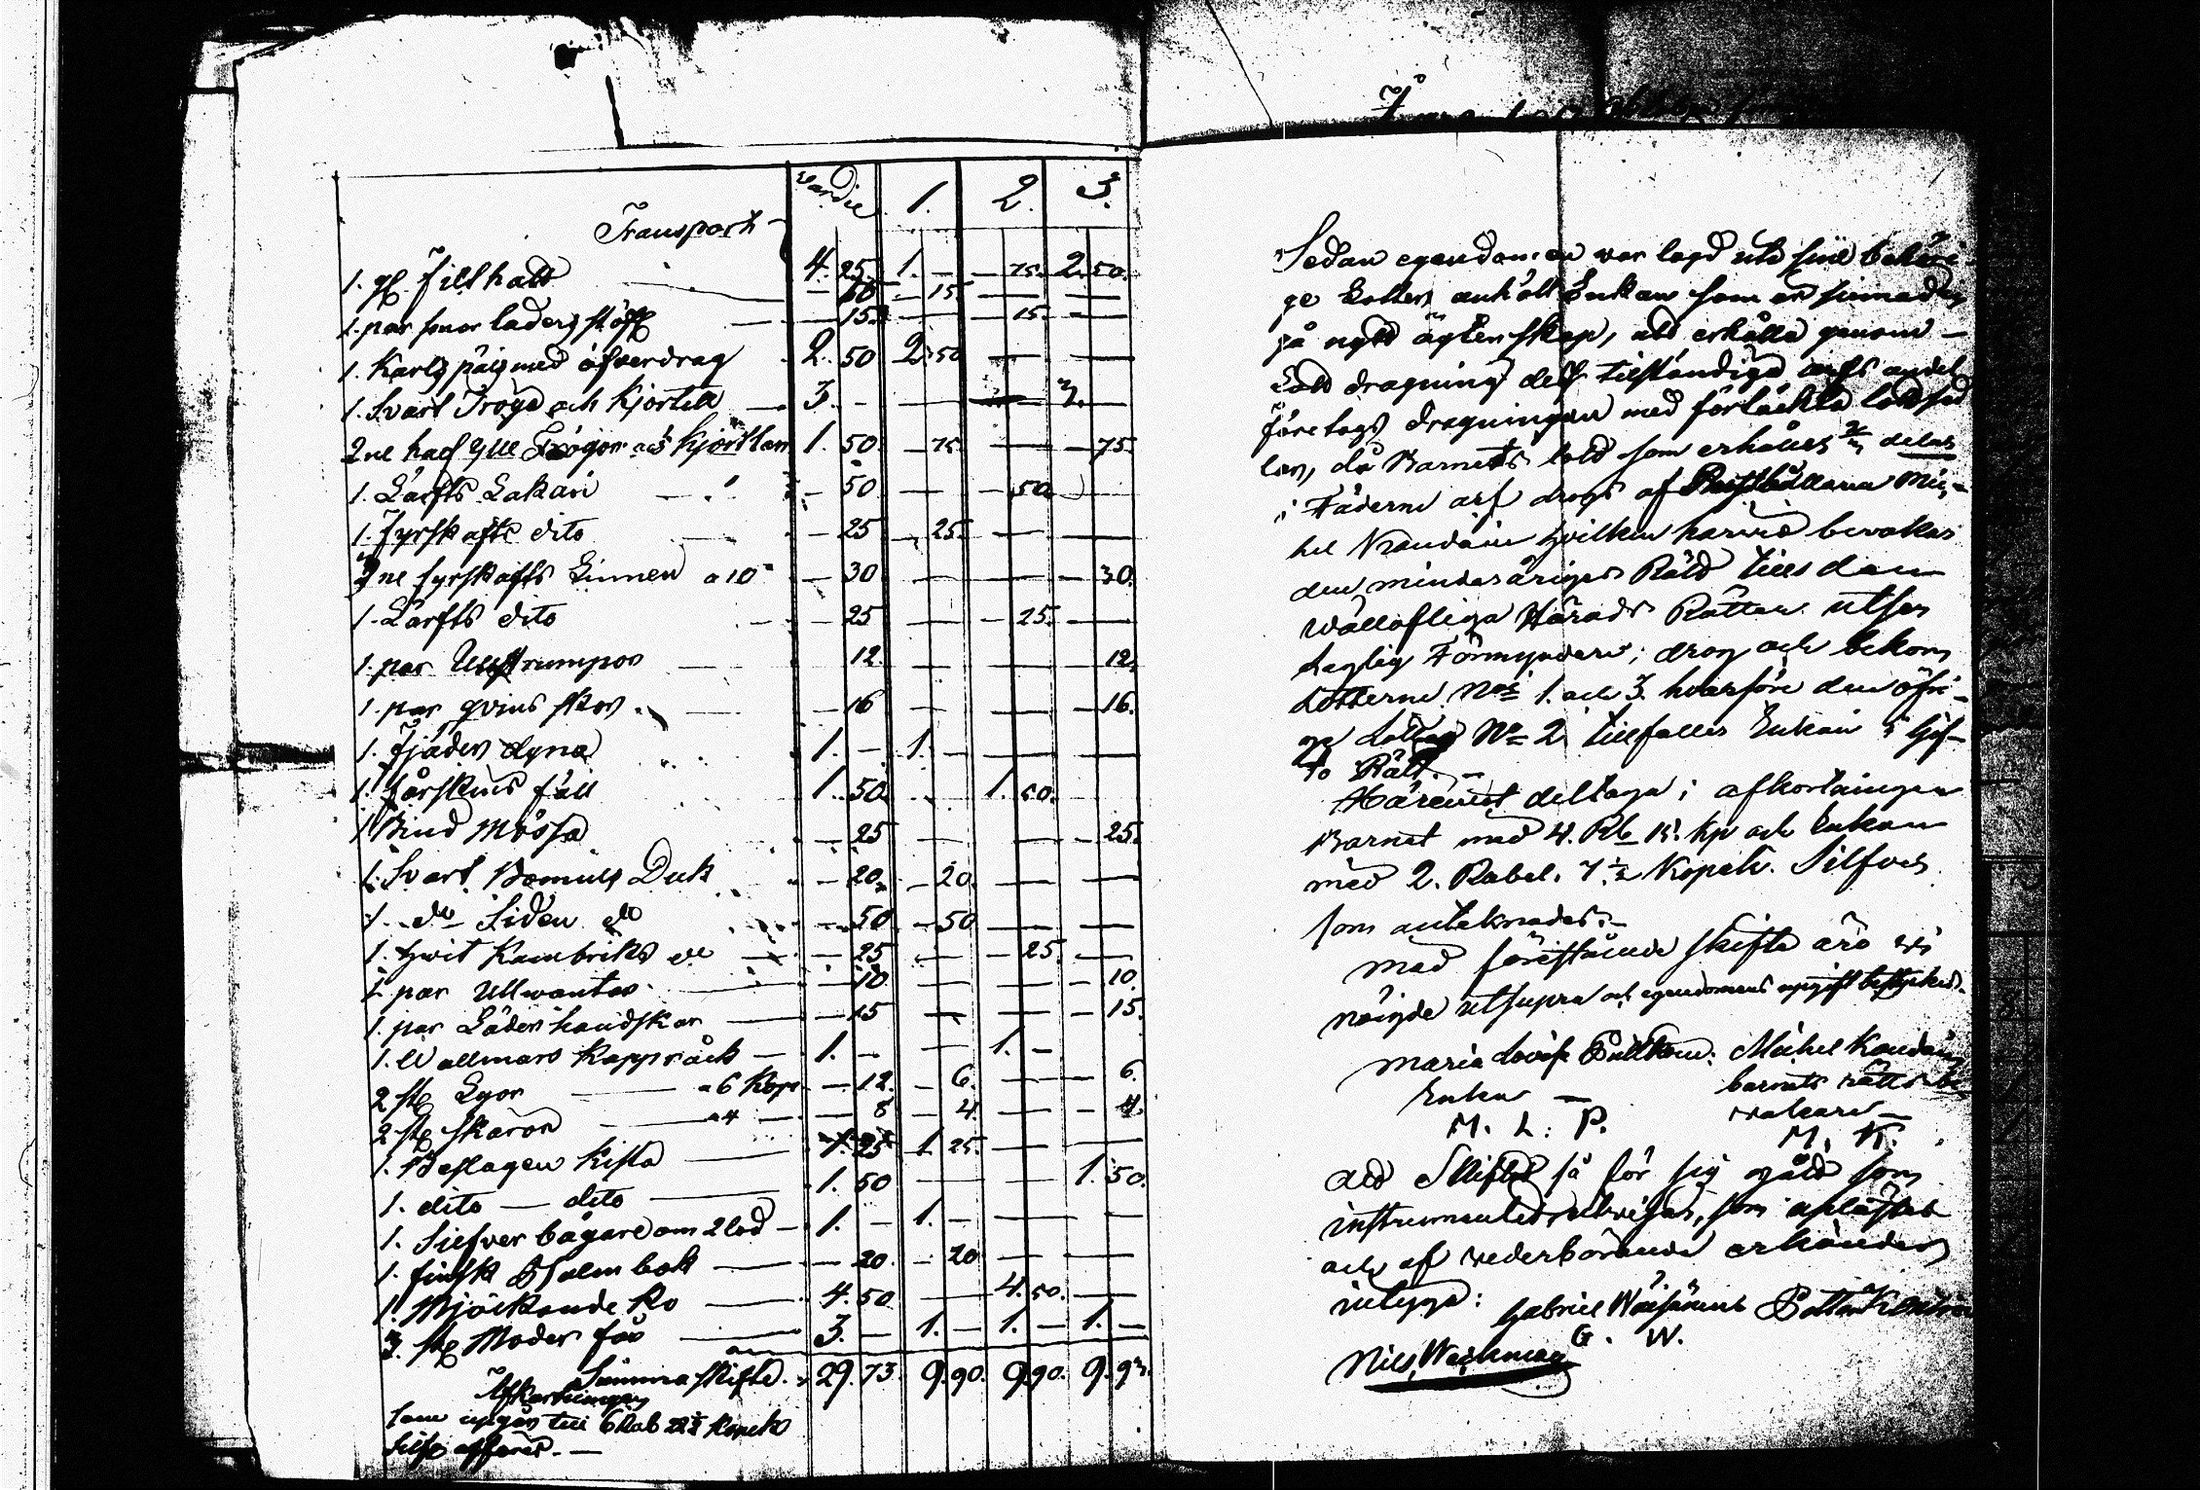 värdie 1. 2. 3.
Transport 4. 25. 1. — — 75. 2. 50.
1. gl. Filthatt — 60 — 15. — —
1. par laders — 15. — — 15. — —
1. Karls päls med öfverdrag 2. 50 2. 50 — —
1. Svart Tröga och Kjortell — 3. — — — 3. —
2ne half ylle Trögor och Kjortlar 1. 50. — 75. — — 75.
1. Lärfts Lakan — 50 — — 50.
1. Fyrskafts dito — 25 — 25. — —
3ne fyrskafts Linnen a 10 — 30 — — — 30.
1. Lärfts dito — 25 — — 25. —
1. par Ullstrumpor — 12. — — — 12.
1. par qvins skor — 16 — — — 16.
1. Fjäder dyna 1. — 1. — — —
1. fårskins fäll 1. 50. 1. 50.
1 Bind Mössa — 25 — — — 25.
1. Svart Bomuls Duk — 20. — 20. — —
1. do Siden do — 50 — 50 — —
1. hvit Kambriks do — 25 — — 25. —
1 par Ullvantar — 10 — — — 10.
1. par Läder handskar — 15 — — — 15.
1. Wallmars Kappråck — 1. — — 1. —
2 st. Lyor — a 6 Kope — 12. — 6. — — 6.
2 st. skäror — a 4 — — 8 — 4. — — 4.
1. Beslagen Kista — 1. 25 1. 25. — —
1. dito — dito — 1. 50 — — 1. 50.
1. Silfver bägare om 2 lod — 1. — 1. — — —
1. finsk Psalm bok — — 20. — 20 — —
1. Mjölkande Ko — 4. 50 — 4. 50. —
3. st. Moder får — 3. — 1. — 1. — 1. —
Summa skifte. 29. 73. 9. 90. 9. 90. 9. 93.
Afkortningen
som upgår till 6 Rub 22½ Kopek
Silfv. afföres. —
Sedan egendomen var lagd uti sine behöri-
ge Lotter, anhöll Enkan som er sinnad
på nytt ägtenskap, att erhålla genom —
Lott dragning dess tillständiga arfs andel
företogs dragningen med förtäckta lott sed
lar, då Barnets lott som erhåller 2/3 delar
i Fäderne arf drogs af Mic-
hel Kandain hvilken härvid bevakar
den minderårigas Rätt tills den
Wällofliga Härads Rätten utser
laglig Förmyndare; drog och bekom
Lotterne No 1. och 3. hvarföre den öfri-
ge Lotten No 2. tillfaller Enkan i Gif-
to Rätt. —
Häremot deltaga i afkortningen
Barnet med 4. Rb 15. kp och Enkan
med 2. Rubel. 7 ½ Kopek. Silfver
som anteknades. —
Med förestående skifte äro vi
nöigde utsupra och egendomens upgift
Maria Lovisa Michel Kandain
Enka — barnets rätts be-
vakare —
M. L. P. M. K.
Att Skiftet så för sig gått som
instrumentet utvisar, som
och af vederbörande erkändes
intyga: Gabriel
G. W.
Nils Weckman